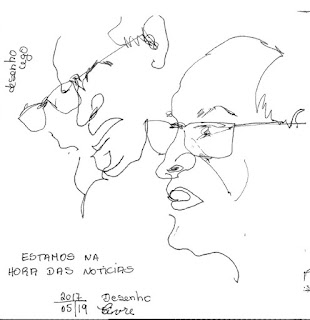 desenho
cego
ESTAMOS NA
HORA DAS NOTICIAS
2017 Desenho
05/19 Livre